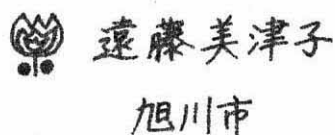 遠藤美津子
旭川市